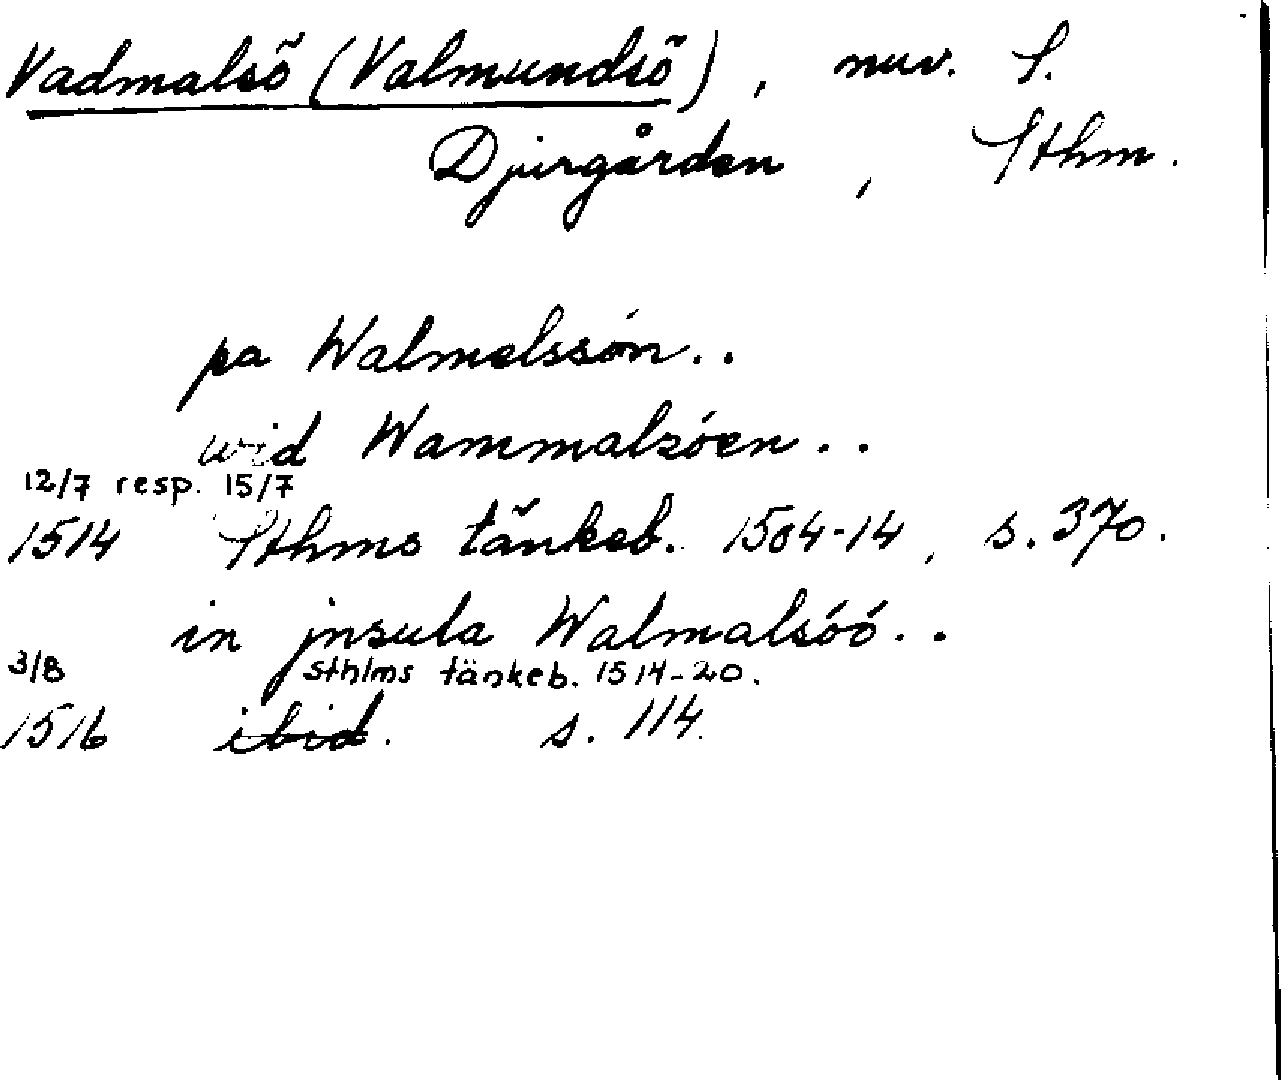 Vadmalsö (Valmundsö), nuv. S.
Djurgården, Sthm.
pa Walmelssón..
wid Wammalzóen..
12/7 resp. 15/7
1514 Sthms tänkeb. 1504-14, s. 370.
in jnsula Walmalsóó..
3/8 Sthlms tänkeb. 1514-20.
1516 ibid. s. 114.